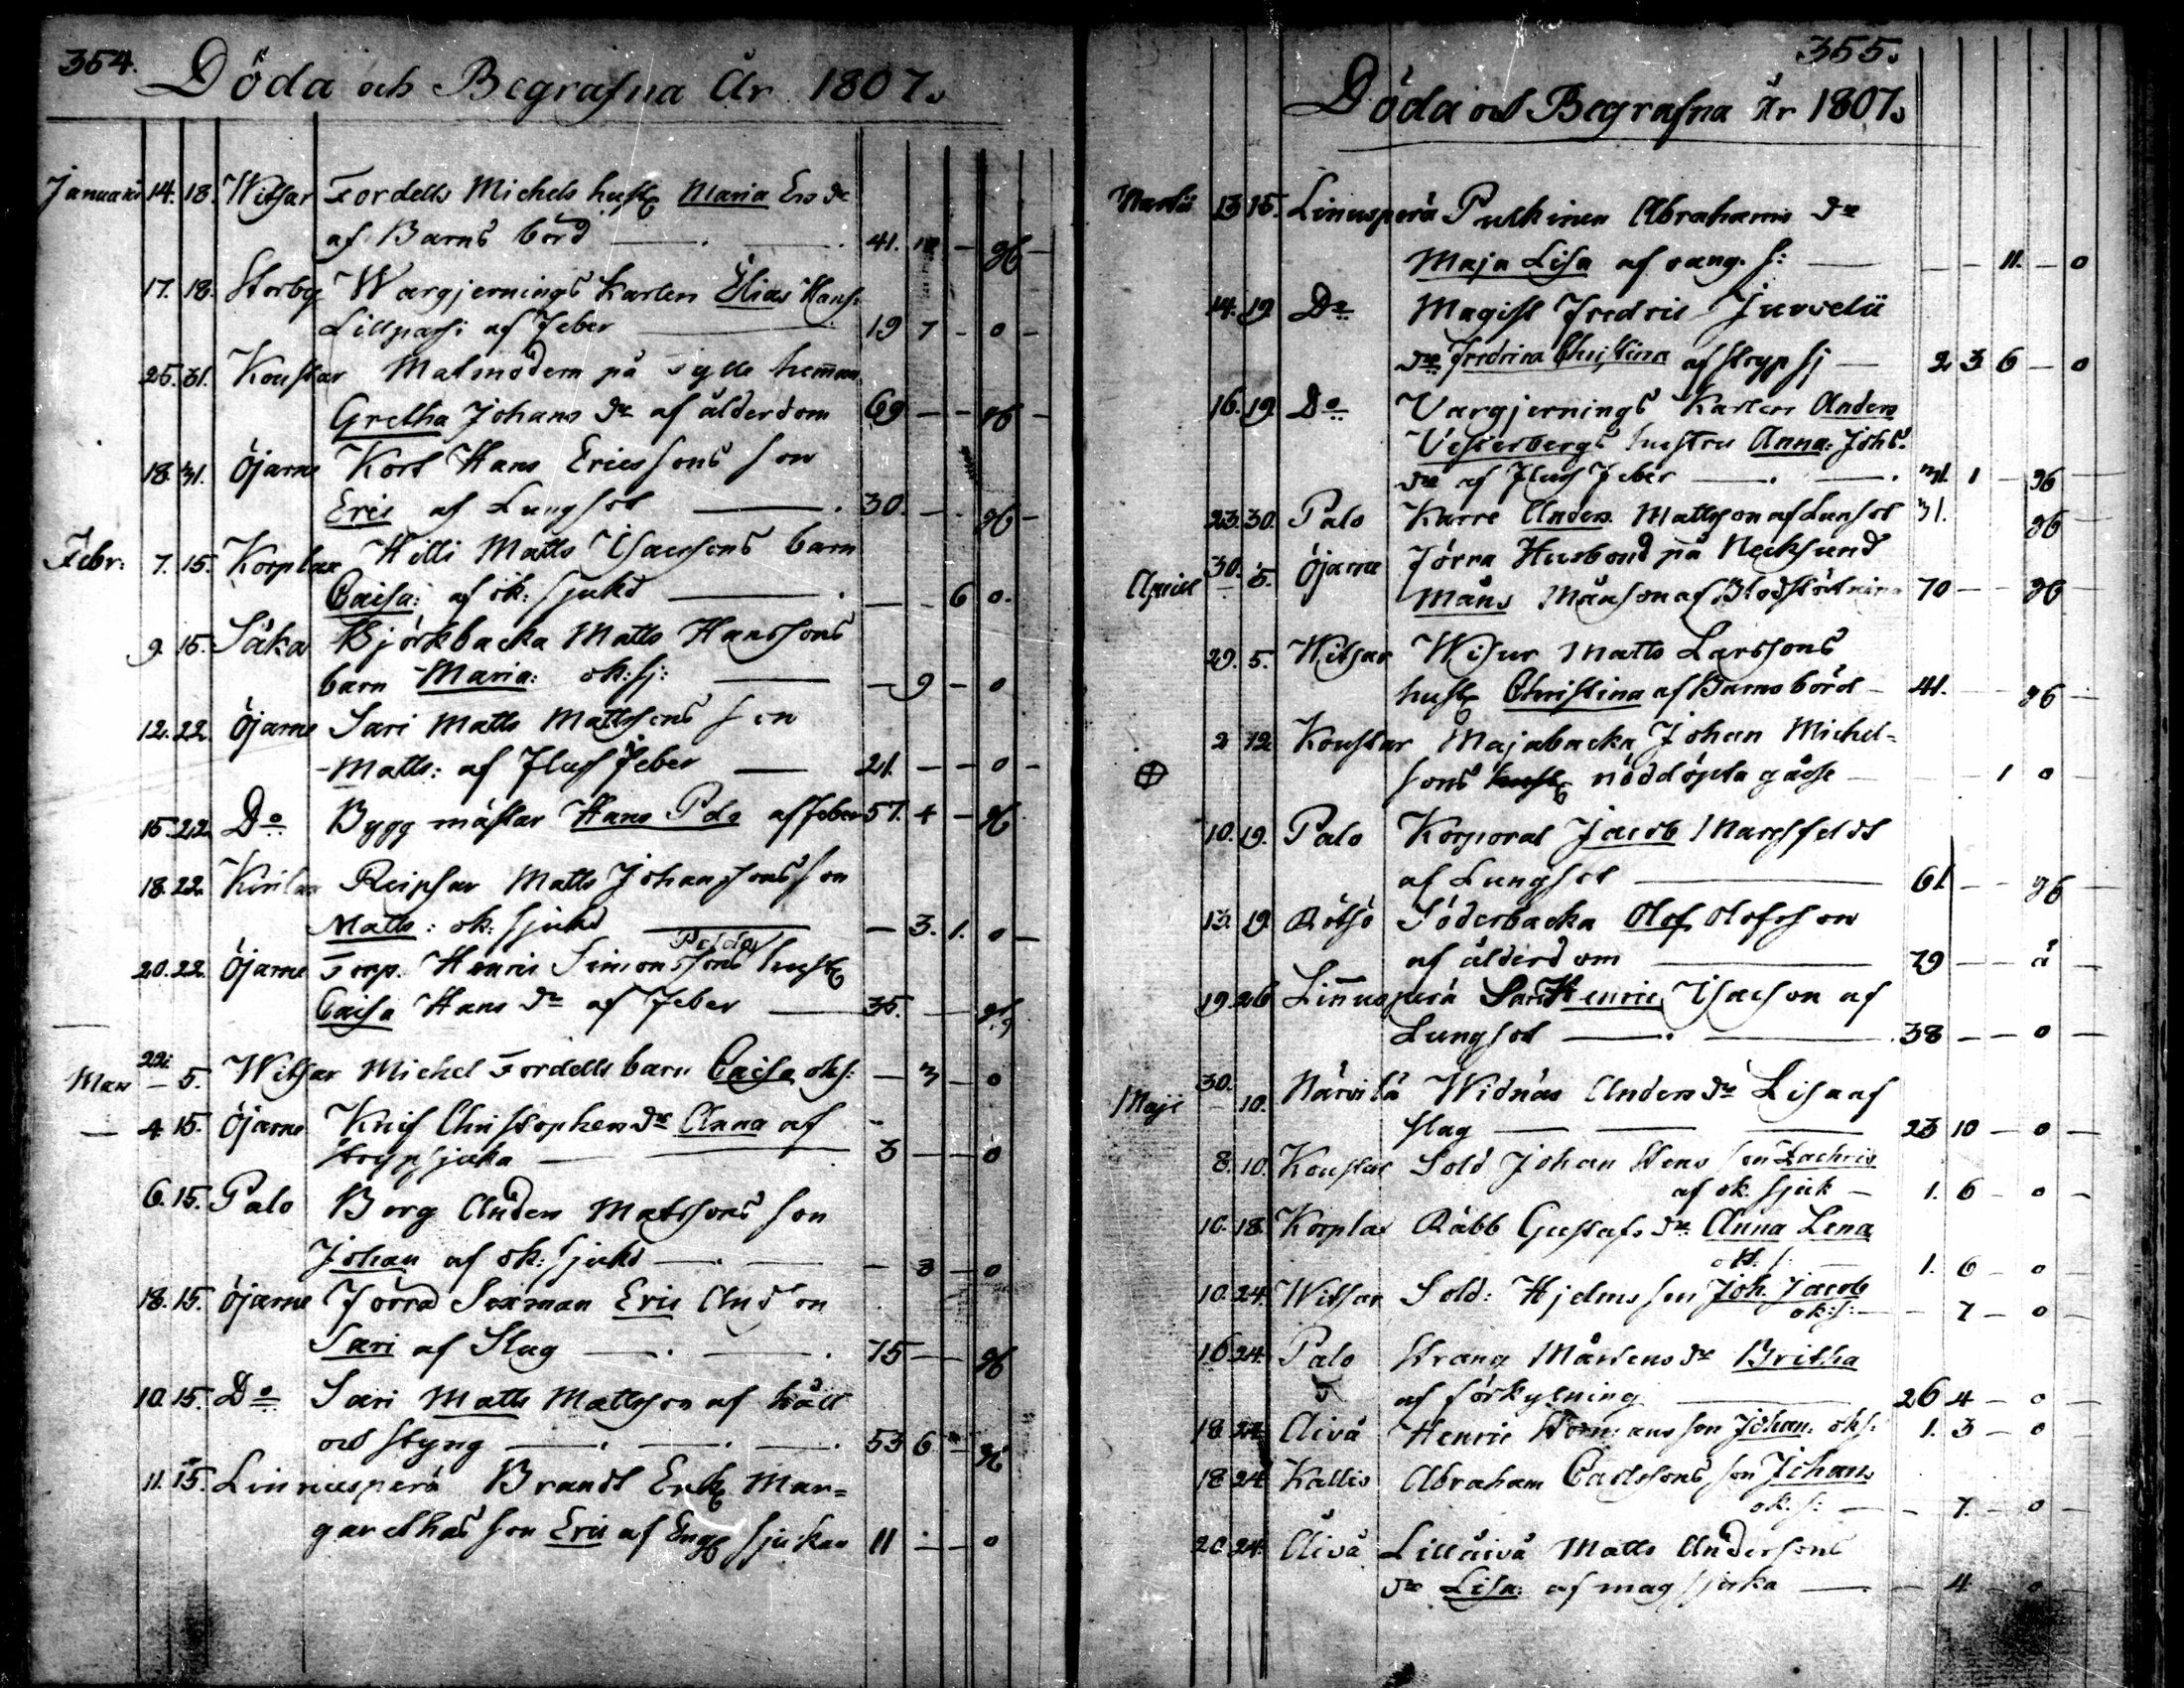 354.
Döda och Begrafna År 1807.
Januarii 14. 18. Witsar Fordells Michels hust Maria Ersdr
af Barns börd 41. 10 - gb -
17. 18. Storby Wargjernings Karlen Elias Hans:
Lillpass: af feber 19 7 - 0 -
25. 31. Koustar Matmodern på Sylle hemman
Gretha Johans dr af ålderdom 69 - - gb -
18. 31. Öjarne Kort Hans Ericssons son
Eric af Lungsot 30. - - gb -
Febr: 7. 15. Korplax Hilli Matts Isacsons barn
Caisa: af ok: sjukd - - 6 0.
9. 15. Såka Björkbacka Matts Hanssons
barn Maria: ok: sj: - 9 - 0
12. 22. Öjarne Sari Matts Mattssons son
Matts: af Fluss feber 21. - - 0 -
15. 22. Do Bygg mästar Hans Polo af feber 57. 4 - gb
18. 22. Reipsar Matts Johanssons son
Matts: ok: sjukd - 3. 1. 0 -
20. 22. Öjarne Torp. Henric Simonssons hust
Caisa Hans dr af feber 35. -
Mars 22. - 5. Witsar Michel Fordells barn Caisa oks: - 3 - 0
4. 15. Öjarne Knif Christophers dr Anna af
stryp sjuka 3 - - 0
6. 15. Palo Borg Anders Matssons son
Johan af ok: sjukd - 3 - 0
18. 15. Öjarne Jörra Sexman Eric Andson
Sari af Slag 75 - - gb
10. 15. Do Sari Matts Mattsson af håll
och styng 53 6 - gb
11. 15. Linnusperä Brandt Enk Mar=
garethas son Eric af Eng sjukan 11 - - 0
355.
Döda och Begrafna År 1807.
Martii 13 15. Linusperä Pulkinen Abrahams dr
Maja Lisa af rang. s: - - 11. - 0
14. 19 Do Magist Fredric Juvelii
dr Fredrica Christina af stryp sj 2 3 6 - 0
16. 19 Do Vargjernings Karlen Anders
Vesterbergs hustru Anna: Johs:
dr af Fluss feber 31. 1 - gb
23. 30. Palo Karre Anders Mattsson af Lunsot 31. gb
April 30. 5. Öjarne Jörra Husbond på Necksund
Måns Månson af Blodstörtning 70 - - gb
29. 5. Witsar Wisur Matts Larssons
hust Christina af Barnsbörd 41. gb -
2 12 Koustar Majabacka Johan Michel-
sons hust nöddöpta gåsse - - 1 0
10. 19. Palo Korporal Jacob Marsfeldt
af Lungsot 61 - - gb -
13. 19. Rötsö Söderbacka Olof Olofsson
af ålderdom 79 - - å -
19. 26 Linnusperä Sari Henric Isacson af
Lungsot 38 - - 0 -
Maji 30. - 10. Närvilä Widnäs Anders dr Lisa af
slag 23 10 - 0 -
8. 10. Koustar Sold Johan Stens son Zachris
af ok. sjuk 1. 6 - 0 -
10. 18. Korplax Räbb Gustafs dr Anna Lena
ok: s: 1. 6 - 0 -
10. 24. Witsar Sold: Hjelms son Joh. Jacob
ok: s: - 7 - 0 -
16 24. Palo Strang Mårtens dr Britha
af förkylning 26 4 - 0 -
18 24. Åivå Henric son Johan. oks: 1. 3 - 0
18 24 Kallis Abraham Carlssons son Johan
ok: s: - 7. - 0 -
20. 24. Åivå Lillåivå Matts Andersons
dr Lisa: af mag sjuka - 4 - 0 -